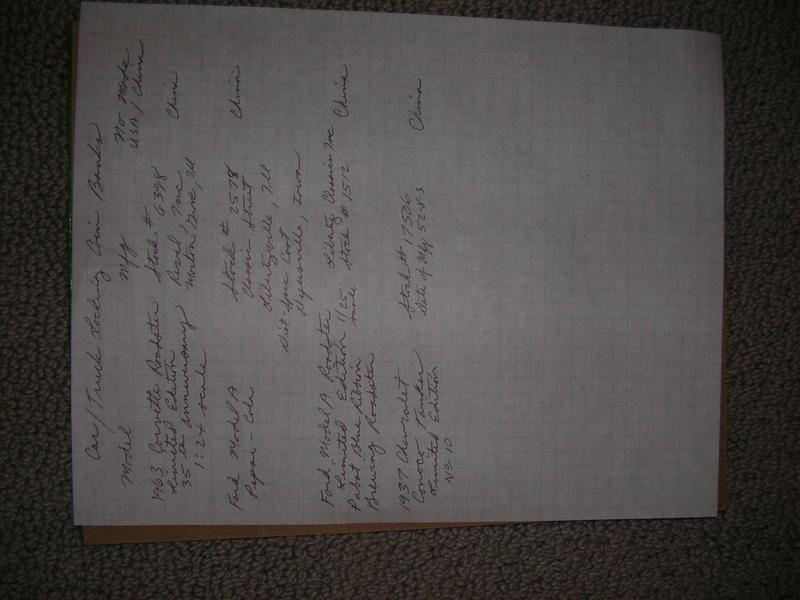 Car/Truck Locking Coin Banks
Model Mfg No Made
USA/China
1963 Corvette Roadster Stock # 6398 China
Limited Edition Revel, Inc
35th anniversary Morton Grove, Ill
1:24 scale
Ford Model A Stock # 2578 China
Pepsi-Cola Classic Street
Libertyville, Ill
Dist- Spec Cast
Dyersville, Iowa
Ford Model A Roadster Liberty Classics Inc
Limited Edition 1/25 Stock # 1512 China
Pabst Blue Ribbon scale
Brewing Roadster
1937 Chevrolet Stock # 17506 China
Conoco Tanker Date of Mfg 5283
Limited Edition
No 10